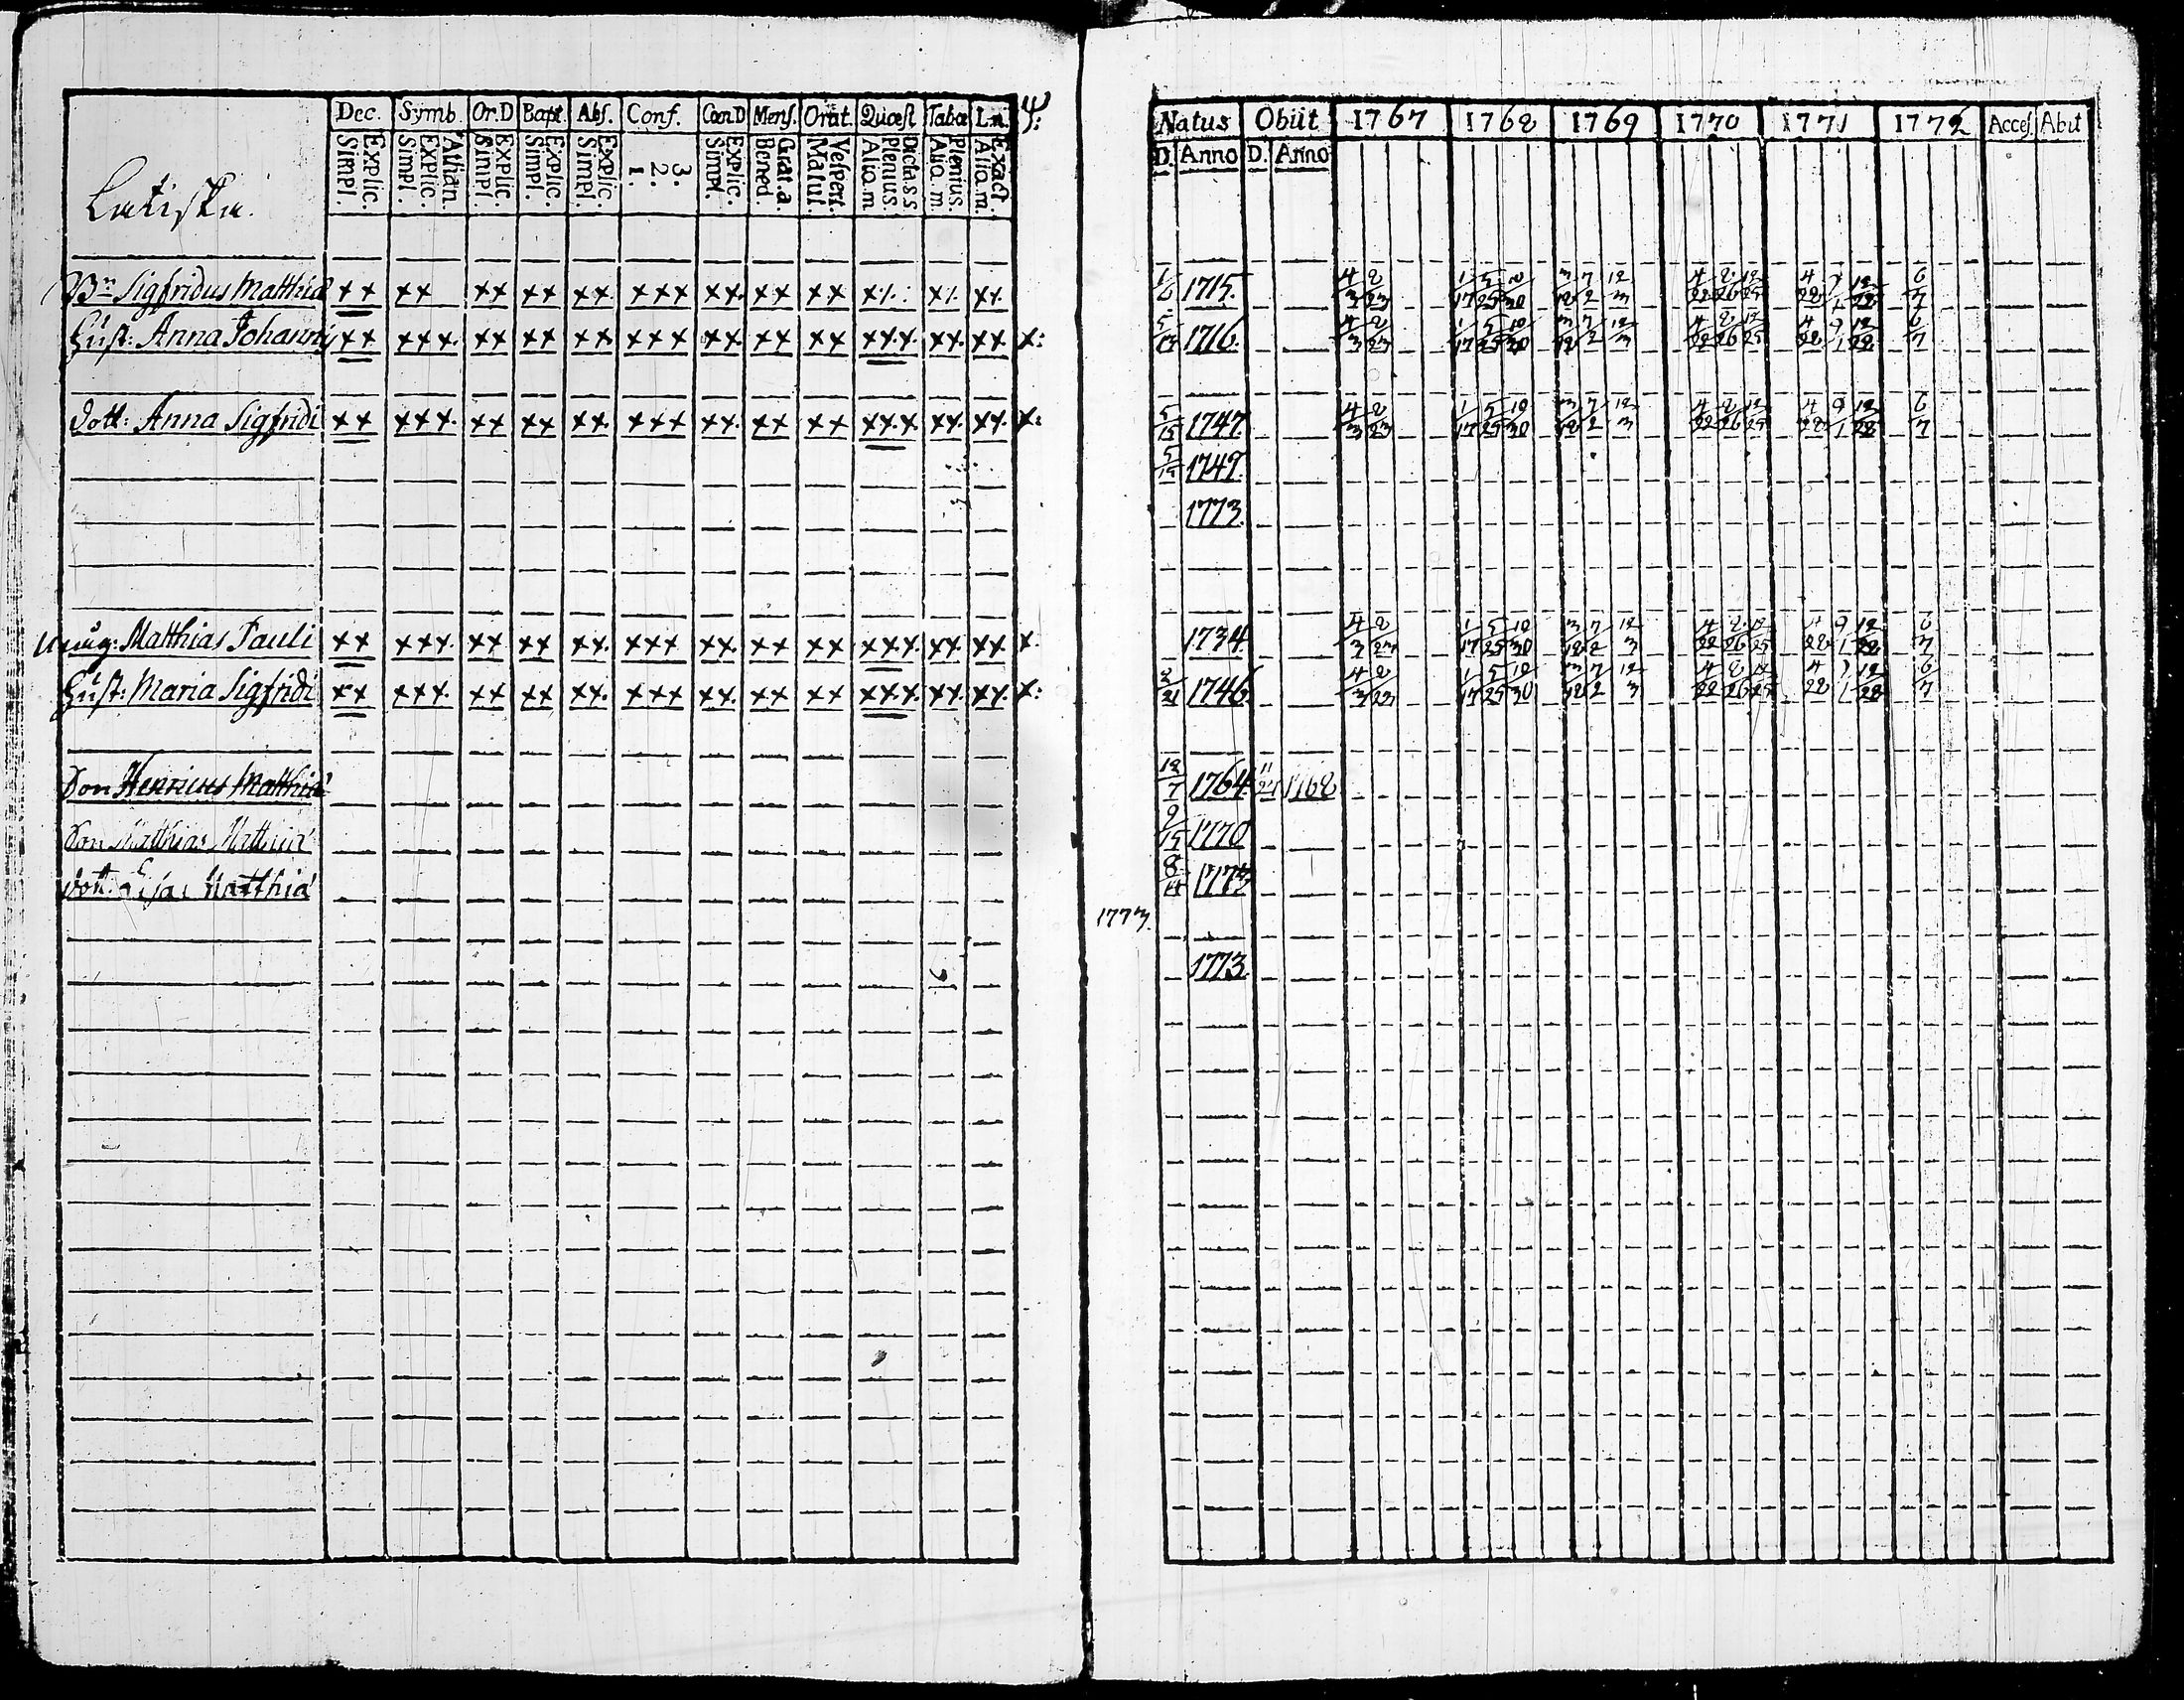 Dec. Symb. Or.D Bapt. Abs. Conf. Cœn.D Mens. Orat. Quæst Tabæ L.n. Ψ:
Explic. Simpl. Athan. Explic. Simpl. Explic. Simpl. Explic. Simpl. Explic. Simpl. 3. 2. 1. Explic. Simpl. Grat.a. Bened. Vespert. Matut. Dicta.s.s. Plenius. Aliq.m. Plenius. Aliq.m. Exact. Aliq.m.
Bn Sigfridus Matthiæ xx xx xx xx xx. xxx xx. xx xx
Hust: Anna Johannis xx xxx. xx xx xx. xxx xx. xx xx xxx. xx. xx x:
dott: Anna Sigfridi xx xxx. xx xx xx. xxx xx. xx xx xxx xx. xx. x:
Matthias Pauli xx xxx. xx xx xx. xxx xx. xx xx xxx. xx. xx x.
Hust: Maria Sigfridi xx xxx. xx xx xx. xxx xx. xx xx xxx. xx. xx. x:
Son Henricus Matthiæ
Son Matthias Matthiæ
dott. Matthiæ
Natus Obiit 1767 1768 1769 1770 1771 1772 Acces. Abiit
D. Anno D. Anno
1715. 4/3 8/23 1/17 5/25 10/30 3/12 7/2 12/3 4/22 8/26 12/25 4/22 9/1 12/28 6/7
1716. 4/3 8/23 1/17 5/25 10/30 3/12 7/2 12/3 4/22 8/26 12/25 4/22 9/1 12/28 6/7
5/15 1747. 4/3 8/23 1/17 5/25 10/30 3/12 7/2 12/3 4/22 8/26 12/25 4/22 9/1 12/28 6/7
5/15 1749.
1773.
1734. 4/3 8/23 1/17 5/25 10/30 3/12 7/2 12/3 4/22 8/26 12/25 4/22 9/1 12/28 6/7
2/21 1746. 4/3 8/23 1/17 5/25 10/30 3/12 7/2 12/3 4/22 8/26 12/25 4/22 9/1 12/28 6/7
12/7 1764 1768
9/15 1770
8/14 1773
1773.
1773